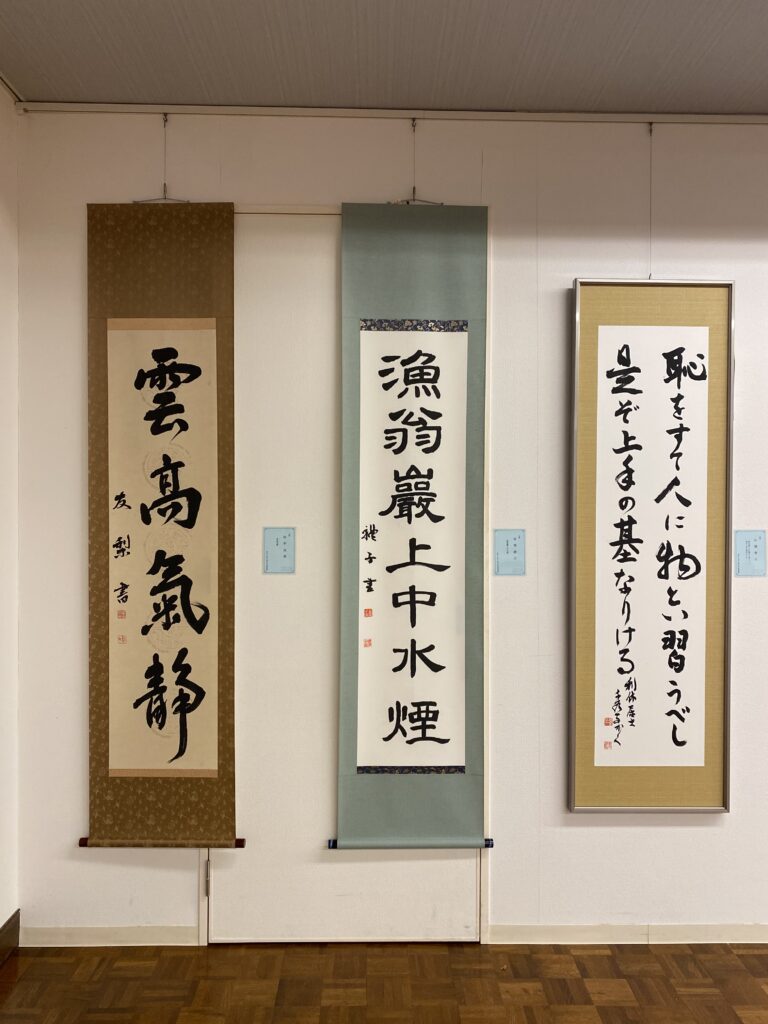 雲高氣静
友梨書
漁翁巖上中水煙
禮子書
恥をすて人に物とい習うべし
是ぞ上手の基なりける
利休居士